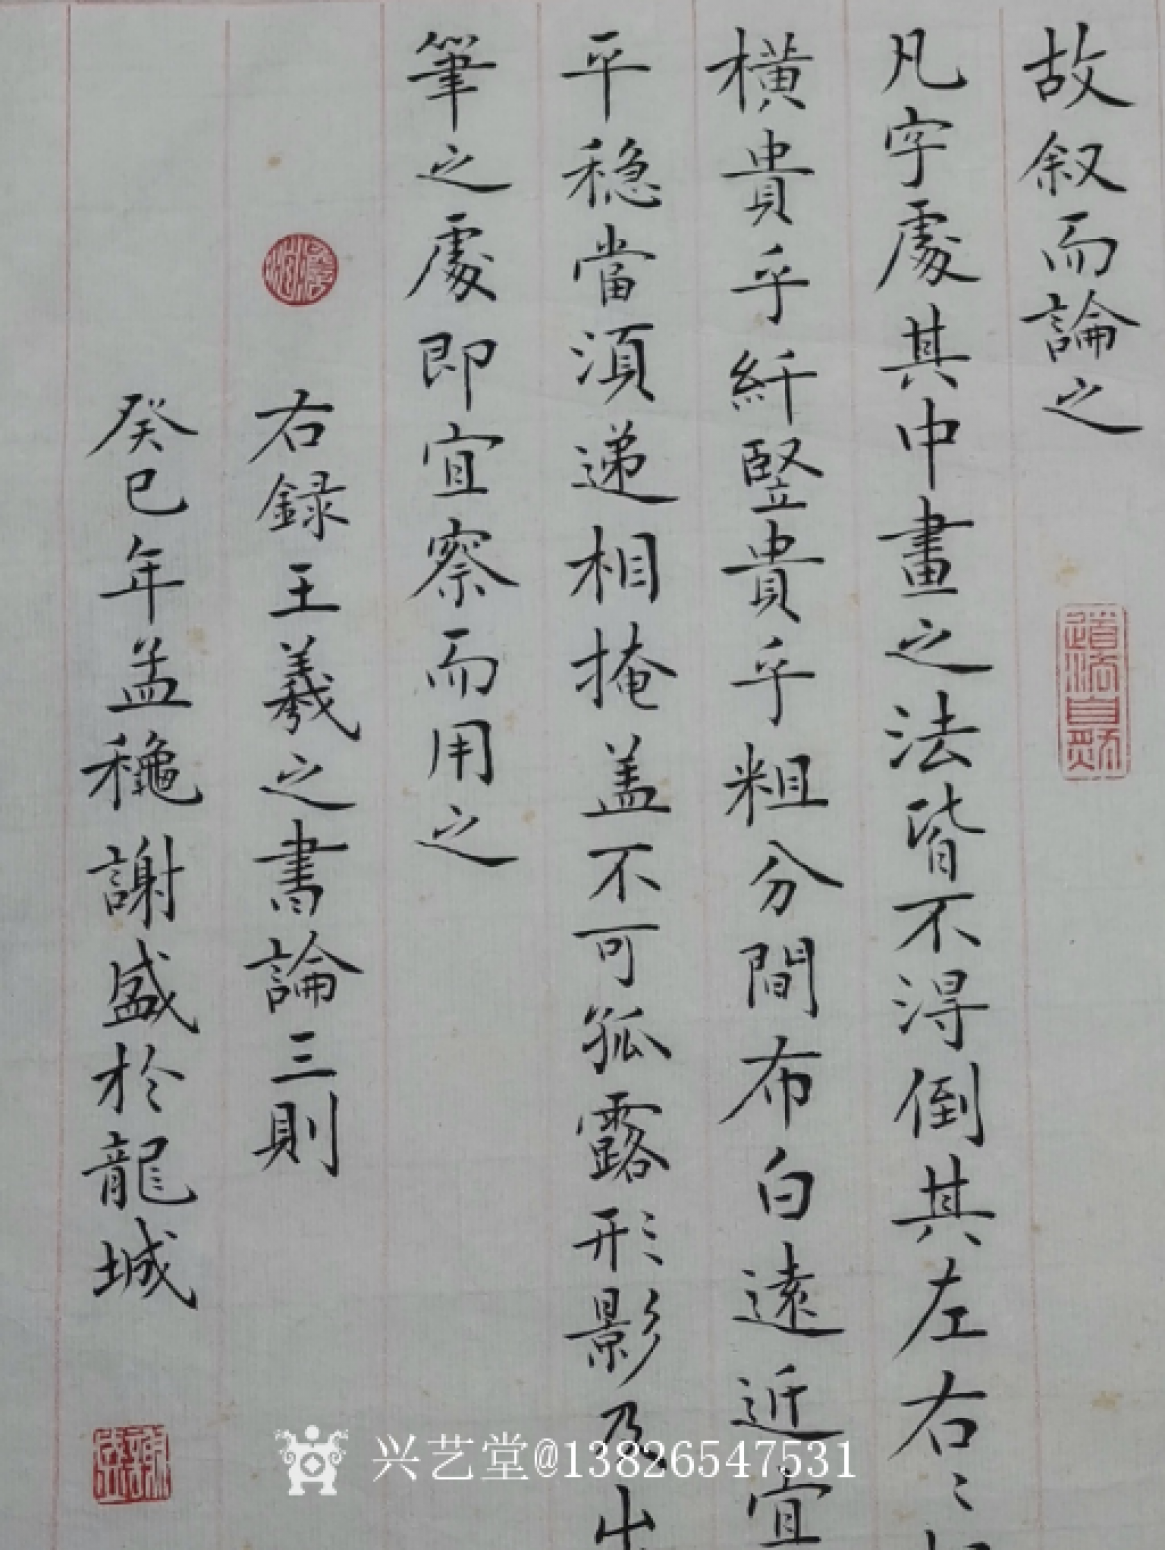 故叙而論之
凡字處其中畫之法皆不得倒其左右〻
橫貴乎纤豎貴乎粗分間布白遠近宜
平稳當須递相掩盖不可孤露形影及出
筆之處即宜察而用之
右録王羲之書論三則
癸巳年孟龝謝盛於龍城
兴艺堂@13826547531